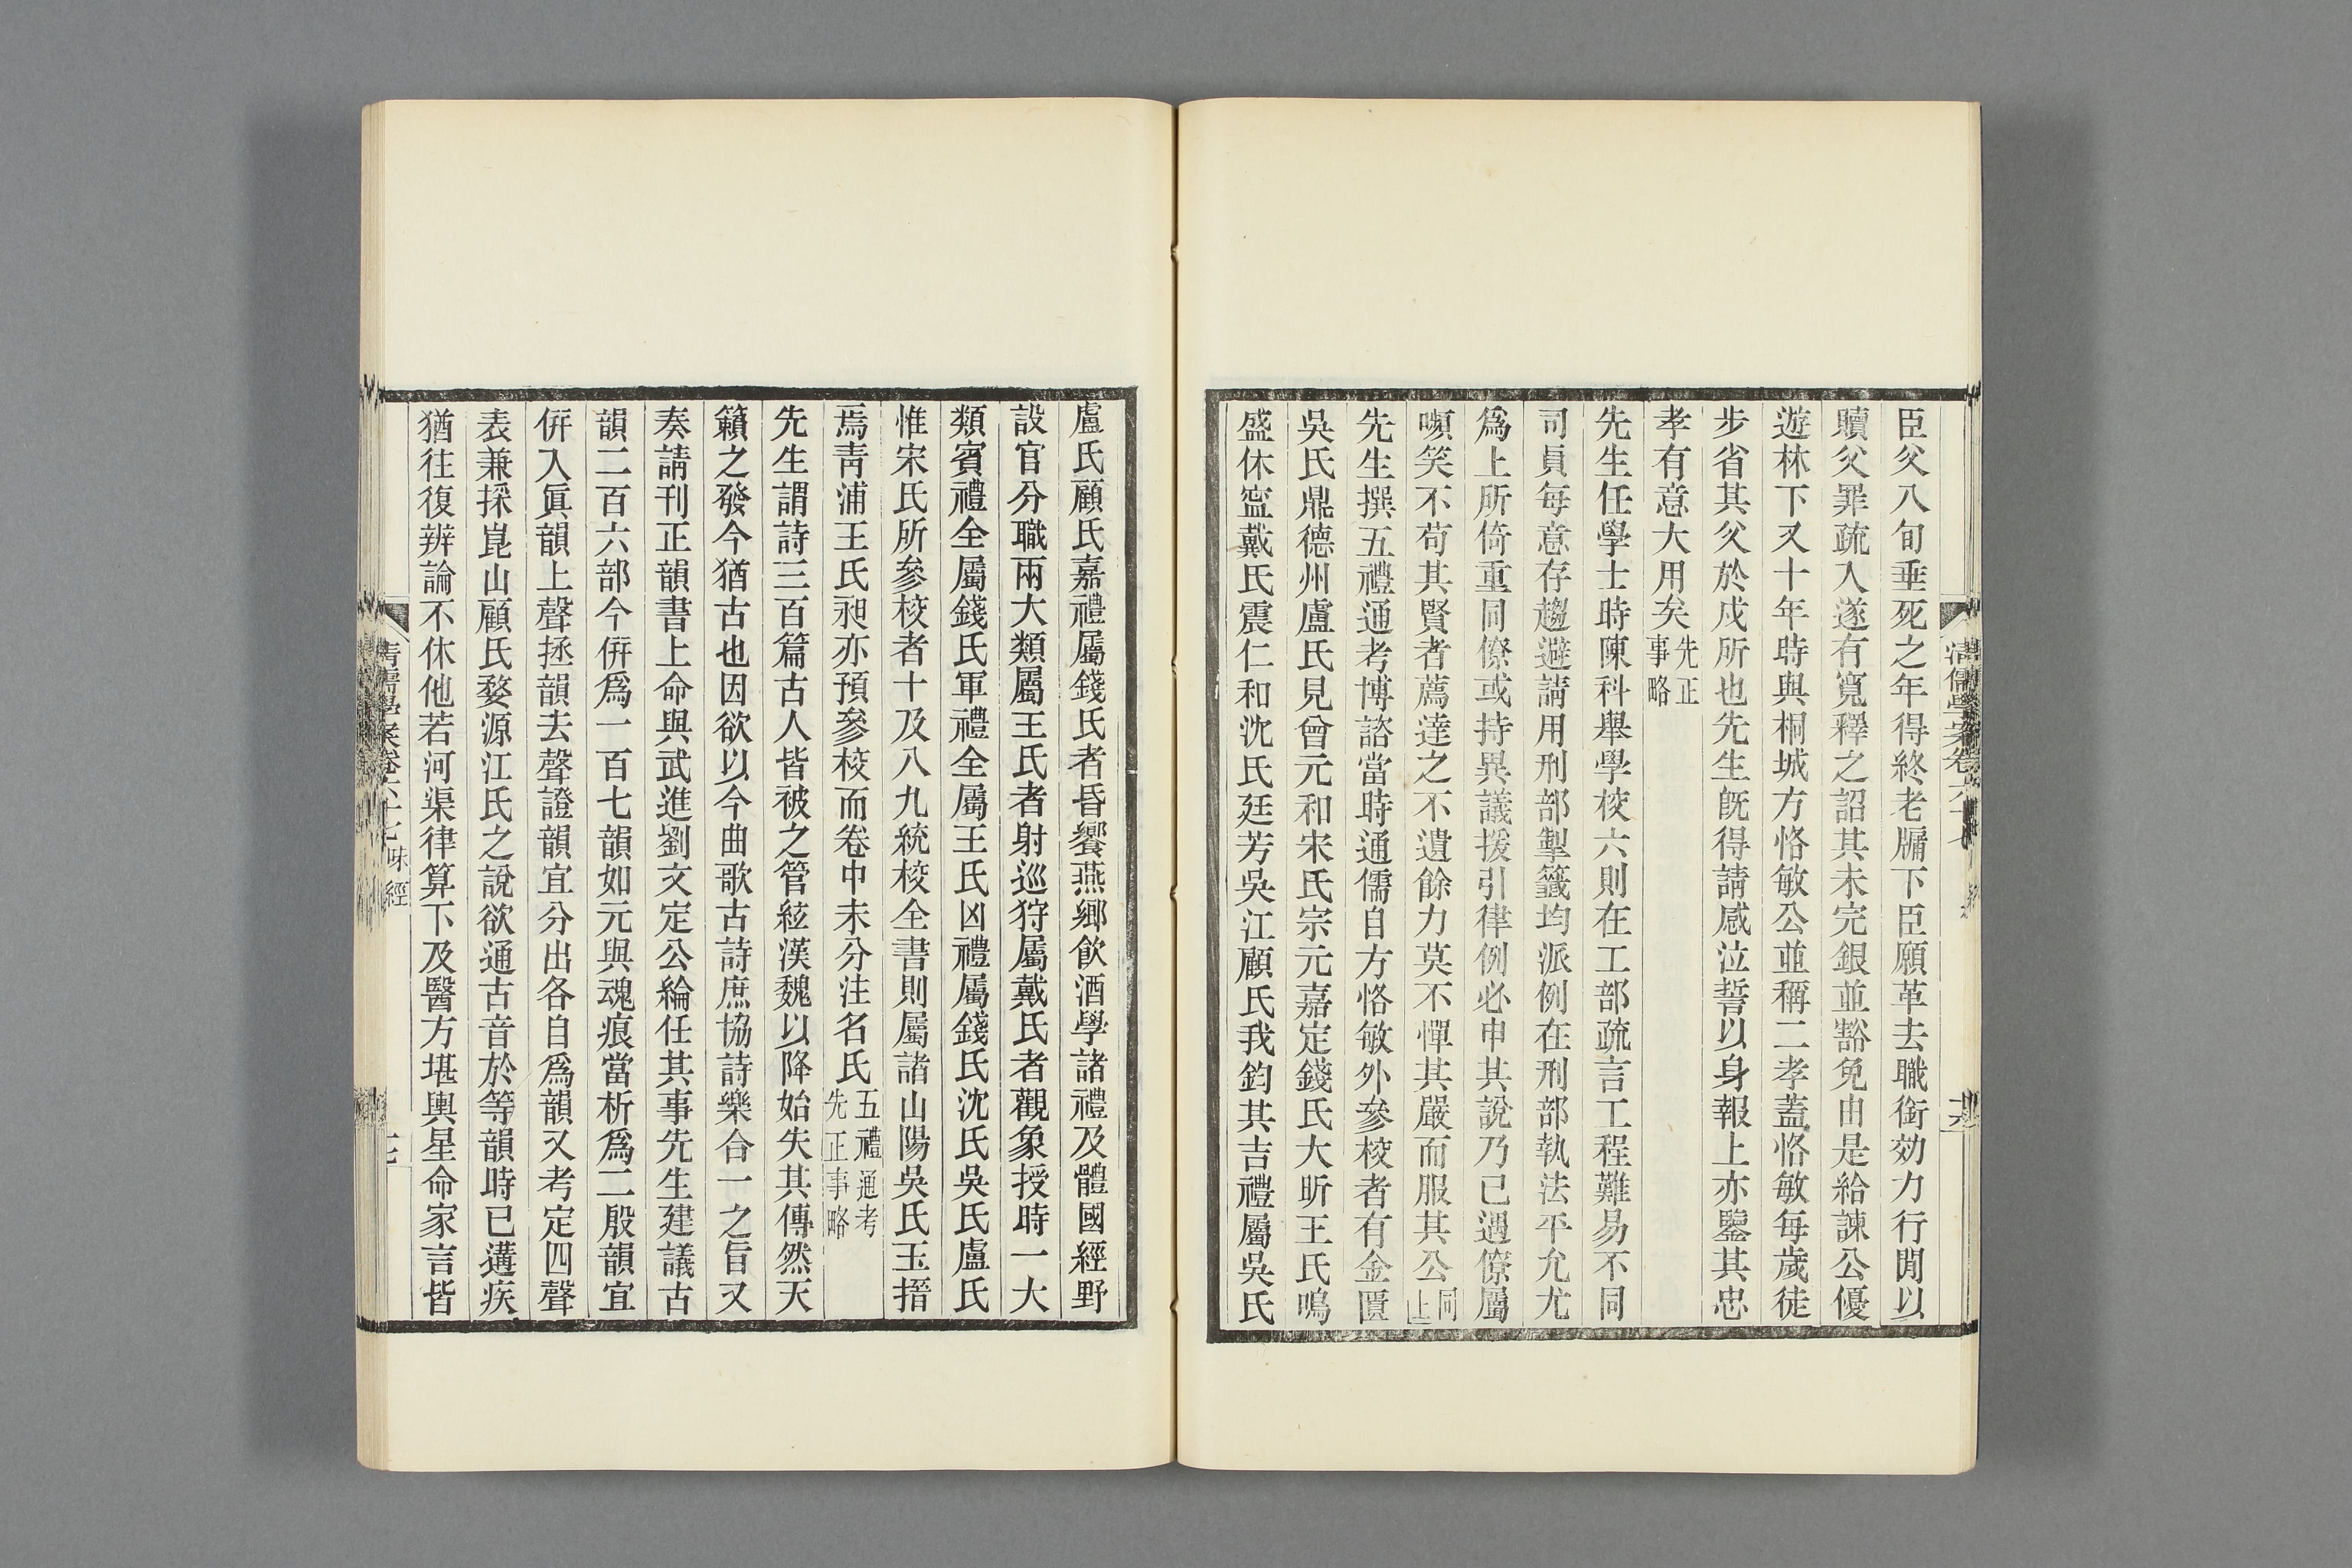 臣父八旬垂死之年得終老牖下臣願革去職銜効力行閒以
贖父罪疏入遂有寬釋之詔其未完銀並豁免由是給諫公優
遊林下又十年時與桐城方恪敏公並稱二孝蓋恪敏每歲徒
步省其父於戍所也先生旣得請感泣誓以身報上亦鑒其忠
孝有意大用矣先正事略
先生任學士時陳科舉學校六則在工部疏言工程難易不同
司員每意存趨避請用刑部掣籤均派例在刑部執法平允尤
爲上所倚重同僚或持異議援引律例必申其說乃已遇僚屬
嚬笑不苟其賢者薦達之不遺餘力莫不憚其嚴而服其公同上
先生撰五禮通考博諮當時通儒自方恪敏外參校者有金匱
吳氏鼎德州盧氏見曾元和宋氏宗元嘉定錢氏大昕王氏鳴
盛休寍戴氏震仁和沈氏廷芳吳江顧氏我鈞其吉禮屬吳氏
盧氏顧氏嘉禮屬錢氏者昏饗燕鄉飮酒學諸禮及體國經野
設官分職兩大類屬王氏者射巡狩屬戴氏者觀象授時一大
類賓禮全屬錢氏軍禮全屬王氏凶禮屬錢氏沈氏吳氏盧氏
惟宋氏所參校者十及八九統校全書則屬諸山陽吳氏玉搢
焉靑浦王氏昶亦預參校而卷中未分注名氏五禮通考先正事略
先生謂詩三百篇古人皆被之管絃漢魏以降始失其傳然天
籟之發今猶古也因欲以今曲歌古詩庶協詩樂合一之旨又
奏請刊正韻書上命與武進劉文定公綸任其事先生建議古
韻二百六部今倂爲一百七韻如元與魂痕當析爲二殷韻宜
倂入眞韻上聲拯韻去聲證韻宜分出各自爲韻又考定四聲
表兼採崑山顧氏婺源江氏之說欲通古音於等韻時已遘疾
猶往復辨論不休他若河渠律算下及醫方堪輿星命家言皆
清儒學案卷六十七 味經 十七